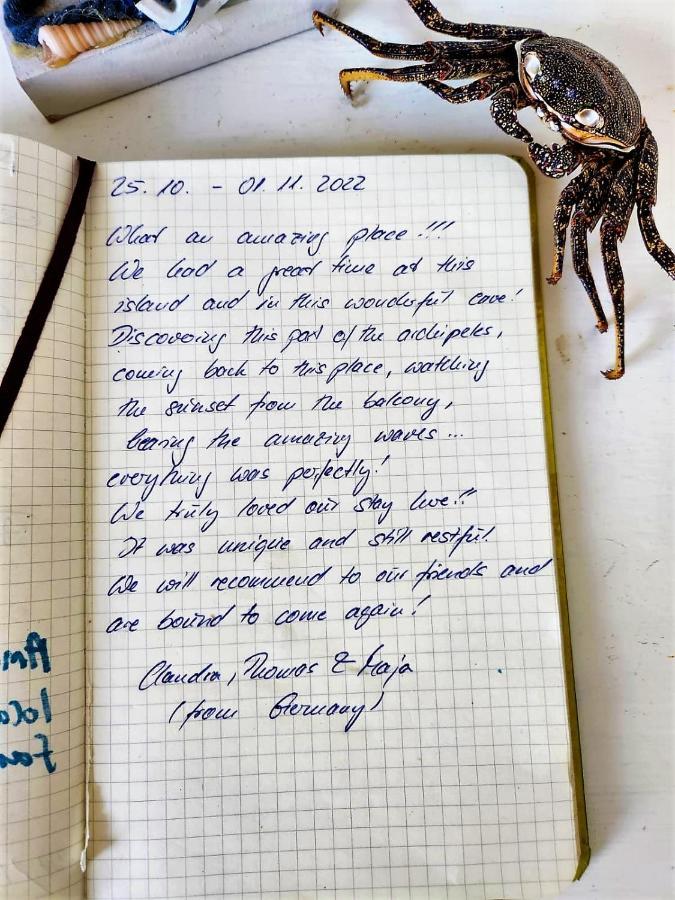 25. 10. - 01. 11. 2022
What an amazing place !!!
We had a great time at this
island and in this wonderful cave!
Discovering this part of the archipels,
coming back to this place, watching
the sunset from the balcony,
hearing the amazing waves ...
everything was perfectly!
We truly loved our stay here!!
It was unique and still restful.
We will recommend to our friends and
are bound to come again!
Claudia, Thomas & Maja
(from Germany)